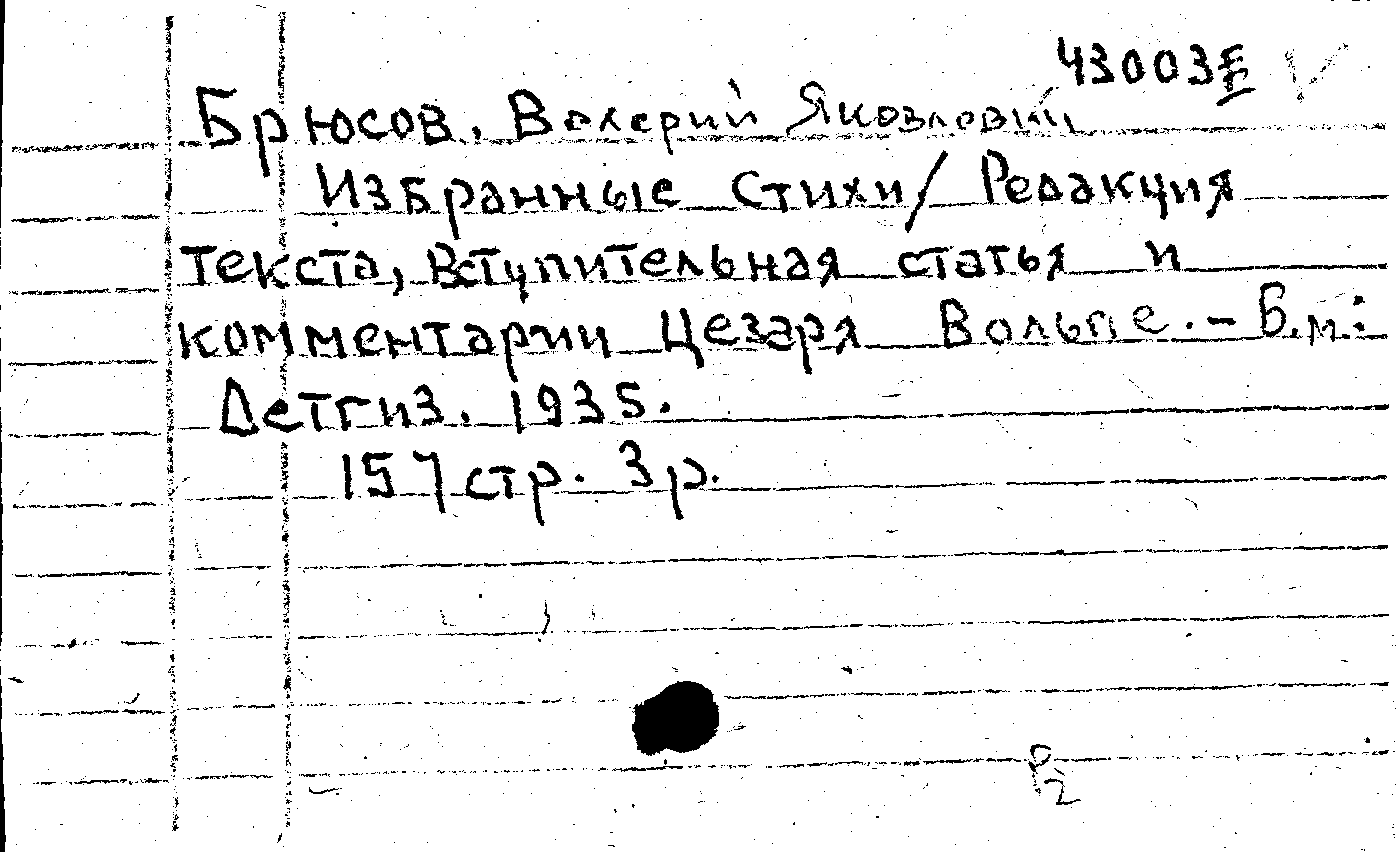 43003
Брюсов, Валерий Яковлевич
Избранные стихи/ Редакция
текста, вступительная статья и
комментарии Цезаря Вольпе. - Б.м:
Детгиз. 1935.
157 стр. 3 р.